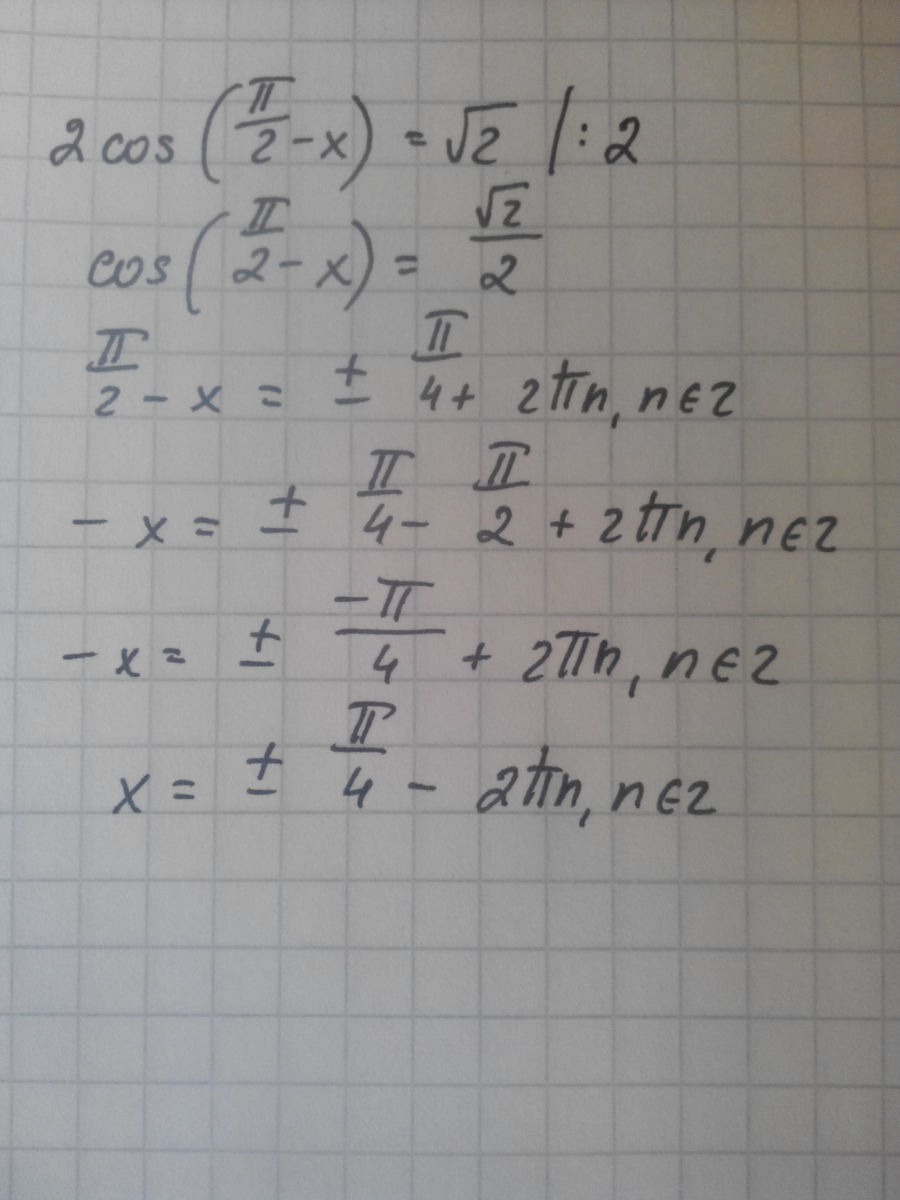 2 cos (π/2 - x) = √2 | : 2
cos (π/2 - x) = √2/2
π/2 - x = ± π/4 + 2πn, n ∈ z
- x = ± π/4 - π/2 + 2πn, n ∈ z
- x = ± -π/4 + 2πn, n ∈ z
x = ± π/4 - 2πn, n ∈ z